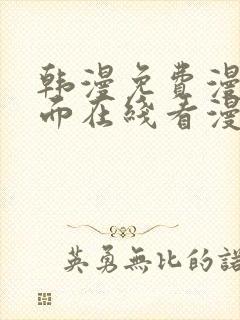 韩漫免費漫
而在綫看漫
英勇無比的諾